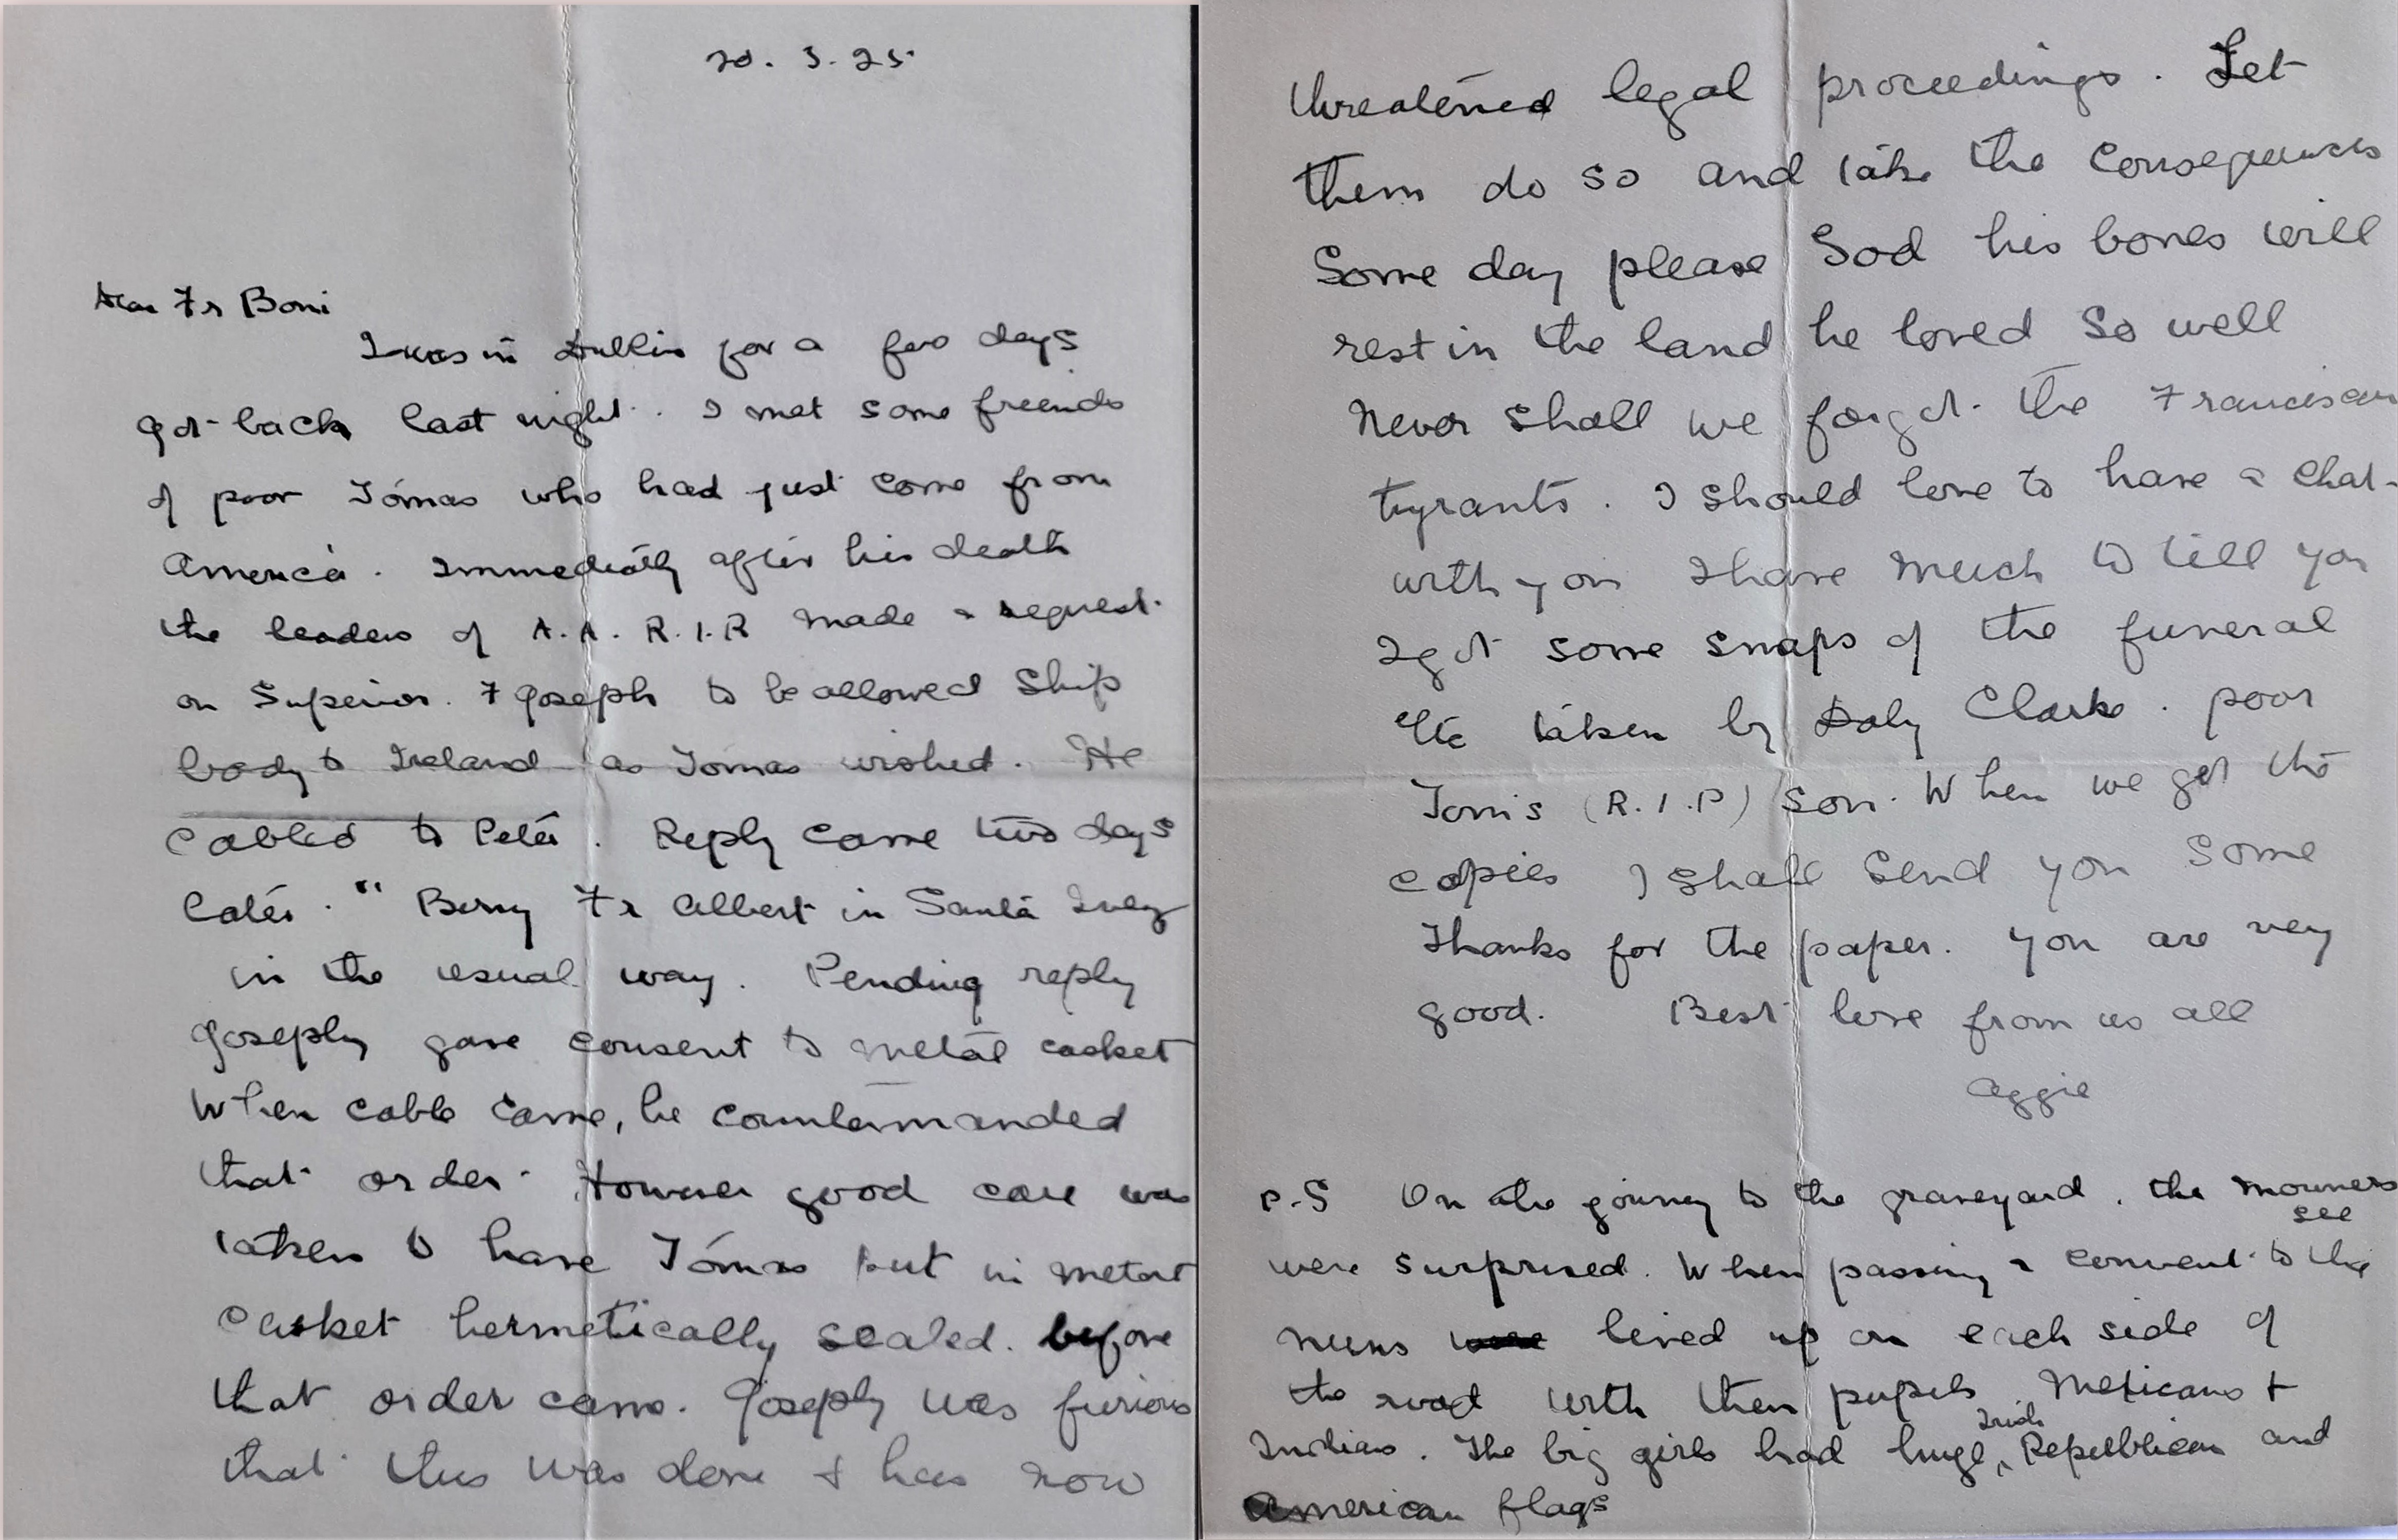 20. 3. 25.
Dear Fr Boni
I was in Dublin for a few days
got back last night. I met some friends
of poor Tómas who had just come from
America. Immediatly after his death
the leaders of A.A.R.I.R made a request
on Superior. F Joseph to be allowed ship
body to Ireland as Tomas wished. He
cabled to Peter. Reply came two days
later. " Bury Fr Albert in Santa Inez
in the usual way. Pending reply
Joseph gave consent to metal casket
When cable came, he countermanded
that order. However good care was
taken to have Tómas put in metal
casket hermetically sealed. before
that order came. Joseph was furious
that this was done & has now
threatened legal proceedings. Let
them do so and take the consequences
Some day please God his bones will
rest in the land he loved so well
Never shall we forget the Franciscan
tyrants. I should love to have a chat
with you I have much to tell you
I got some snaps of the funeral
etc taken by Daly Clarke. poor
Tom's (R.I.P) son. When we get the
copies I shall send you some
Thanks for the paper. you are very
good. Best love from us all
Aggie
P.S On the journey to the graveyard. the mourners
were surprised. When passing a convent to see the
nuns lined up on each side of
the road with their pupils, Mexicans +
Indians. The big girls had huge Irish Republican and
American flags